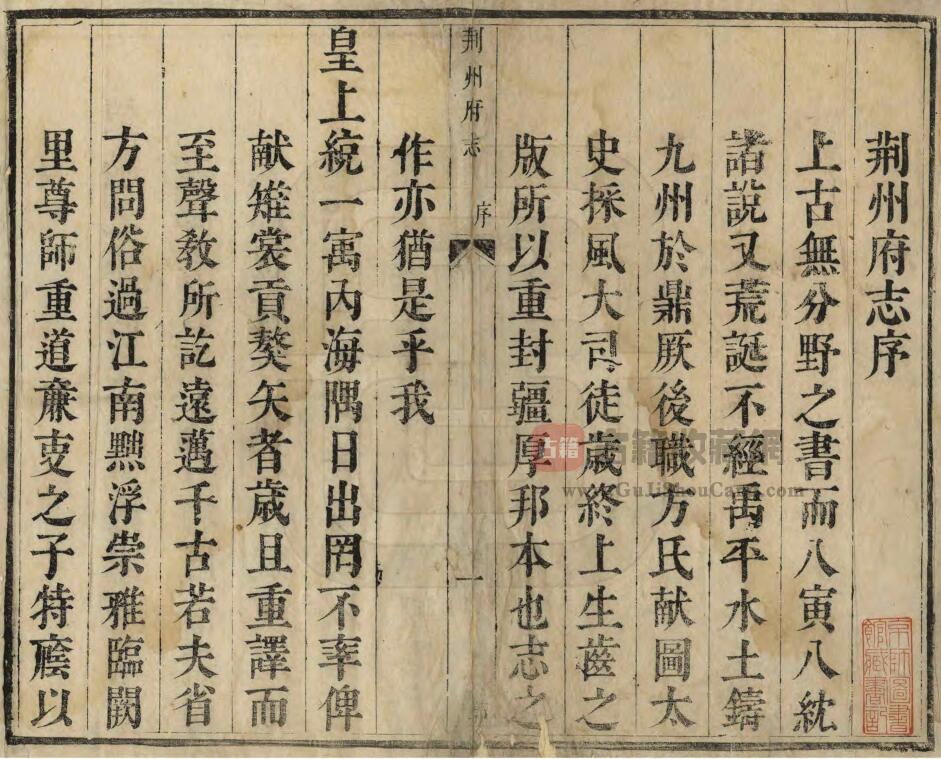 荆州府志序
上古無分野之書而八寅八紘
諸說又荒誕不經禹平水土鑄
九州於鼎厥後職方氏献圖太
史採風大司徒歲終上生齒之
版所以重封疆厚邦本也志之
荆州府志 序 一
作亦猶是乎我
皇上統一寓內海隅日出罔不率俾
献雉裳貢獒矢者歲且重譯而
至聲敎所訖遠邁千古若夫省
方問俗過江南黜浮崇雅臨闕
里尊師重道亷吏之子特廕以
古籍 古籍收藏網
www.GuJiShouCang.com